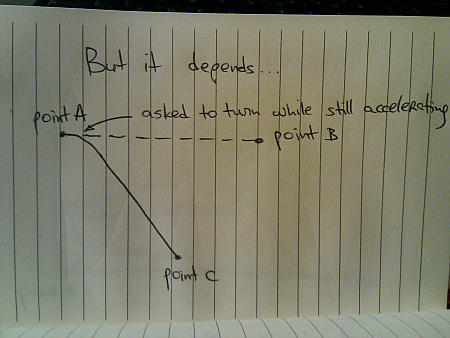 But it depends...
point A
asked to turn while still accelerating
point B
point C